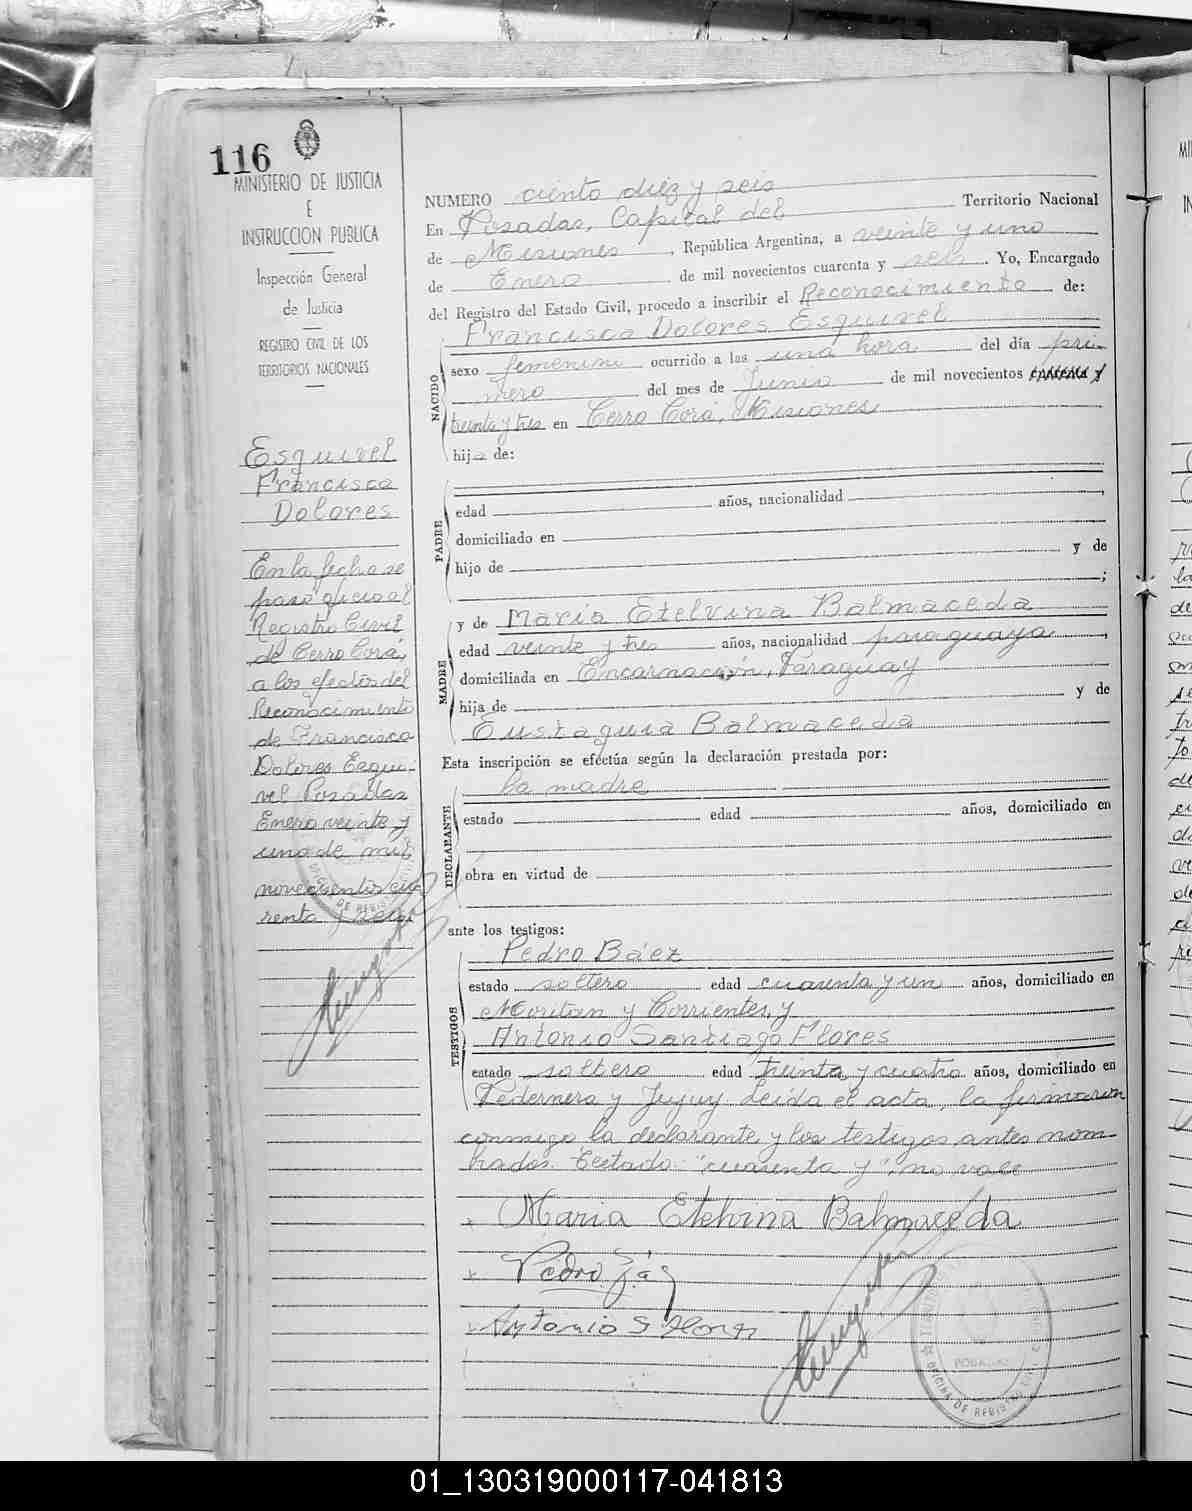 116
MINISTERIO DE JUSTICIA
E
INSTRUCCION PUBLICA
Inspección General
de Justicia
REGISTRO CIVIL DE LOS
TERRITORIOS NACIONALES
Esquivel
Francisca
Dolores
En la fecha se
pasó oficio al
Registro Civil
de Cerro Corá
a los efectos del
Reconocimiento
de Francisca
Dolores Esqui-
vel Posadas
Enero veinte y
uno de mil
novecientos cua
renta y seis
NUMERO ciento diez y seis
En Posadas, Capital del Territorio Nacional
de Misiones, República Argentina, a veinte y uno
de Enero de mil novecientos cuarenta y seis. Yo, Encargado
del Registro del Estado Civil, procedo a inscribir el Reconocimiento de:
NACIDO
Francisca Dolores Esquivel
sexo femenino ocurrido a las una hora del día pri-
mero del mes de Junio de mil novecientos cuarenta y
treinta y tres en Cerro Corá, Misiones
hija de:
PADRE
edad años, nacionalidad
domiciliado en
hijo de y de
;
MADRE
y de María Etelvina Balmaceda
edad veinte y tres años, nacionalidad paraguaya,
domiciliada en Encarnación, Paraguay
hija de y de
Eustaquia Balmaceda
Esta inscripción se efectúa según la declaración prestada por:
DECLARANTE
la madre
estado edad años, domiciliado en
obra en virtud de
ante los testigos:
TESTIGOS
Pedro Báez
estado soltero edad cuarenta y un años, domiciliado en
y Corrientes, y
Antonio Santiago Flores
estado soltero edad treinta y cuatro años, domiciliado en
Pedernera y Jujuy Leida el acta, la firmaron
conmigo la declarante y los testigos antes nom-
brados. Testado: "cuarenta y": no vale
Maria Etelvina Balmaceda
Pedro
Antonio S Flores
POSADAS
OFICINA DE REGISTRO
01_130319000117-041813